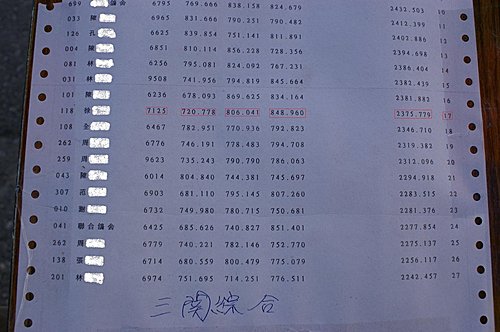 699 鴿舍 6795 769.666 838.158 824.679 2432.503 10
033 陳 6965 831.666 790.251 790.482 2412.399 11
126 孔 6625 839.854 751.141 811.891 2402.886 12
004 陳 6851 810.114 856.228 728.356 2394.698 13
081 林 6256 795.081 824.092 767.231 2386.404 14
031 林 9508 741.956 794.819 845.664 2382.439 15
101 陳 6236 678.093 869.625 834.164 2381.882 16
118 徐 7125 720.778 806.041 848.960 2375.779 17
108 全 6467 782.951 770.936 792.823 2346.710 18
262 周 6776 746.191 778.483 794.708 2319.382 19
259 周 9623 735.243 790.790 786.063 2312.096 20
043 陳 6014 804.840 744.381 745.697 2294.918 21
307 范 6903 681.110 795.145 807.260 2283.515 22
010 鮑 6732 749.980 780.715 750.681 2281.376 23
041 聯合鴿舍 6425 685.626 740.827 851.401 2277.854 24
262 周 6779 740.221 782.146 752.770 2275.137 25
138 張 6714 680.559 800.479 775.079 2256.117 26
201 林 6974 751.695 714.251 776.511 2242.457 27
三関綜合